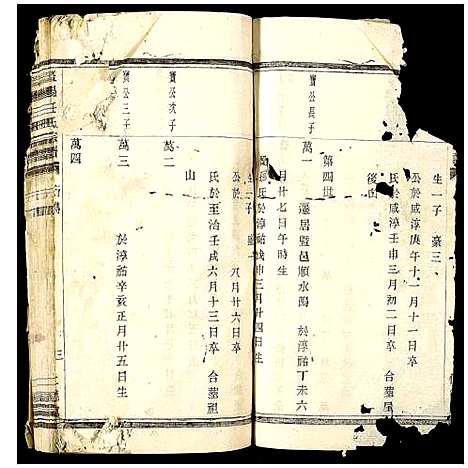 生一子 豪三
公於咸淳庚午十一月十一日卒
氏於咸淳壬申三月初二日卒 合墓屋
後
第四世
寶公長子
萬一
遷居暨邑順水 於淳祐丁未六
月廿七日午時生
氏於淳祐戊申三月廿四日生
生一子
公於 八月廿六日卒
氏於至治壬戌六月十三日卒 合墓祖
山
寶公次子
萬二
寶公三子
萬三
於淳祐辛亥正月廿五日生
萬四
三